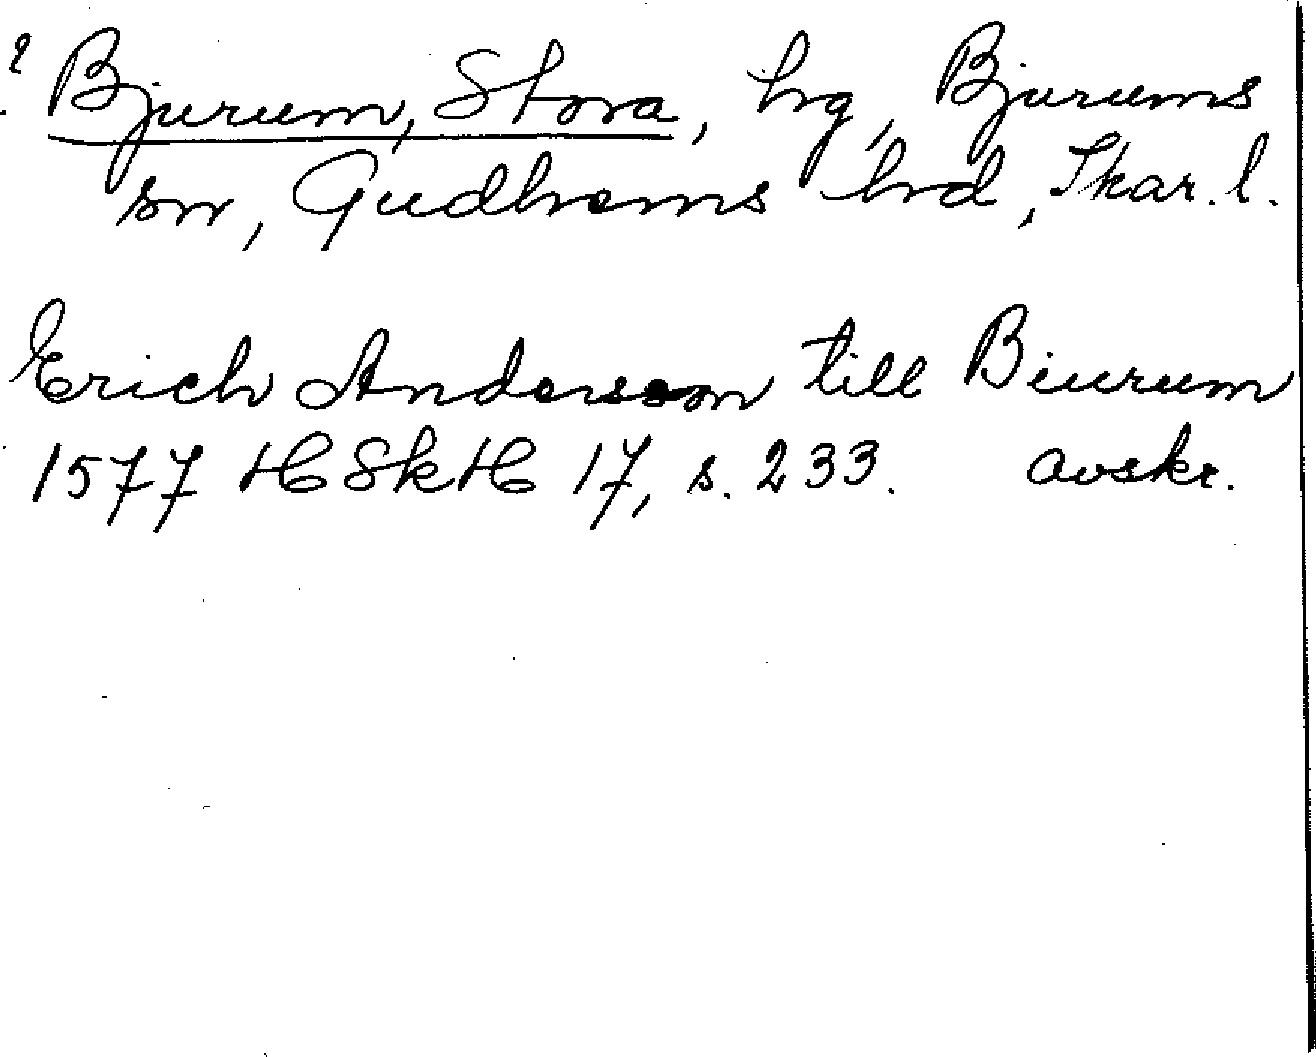 ? Bjurum, Stora, hg, Bjurums
sn, Gudhems hrd, Skar. l.
Erich Anderson till Biurum
1577 HSkH 17, s. 233. avskr.